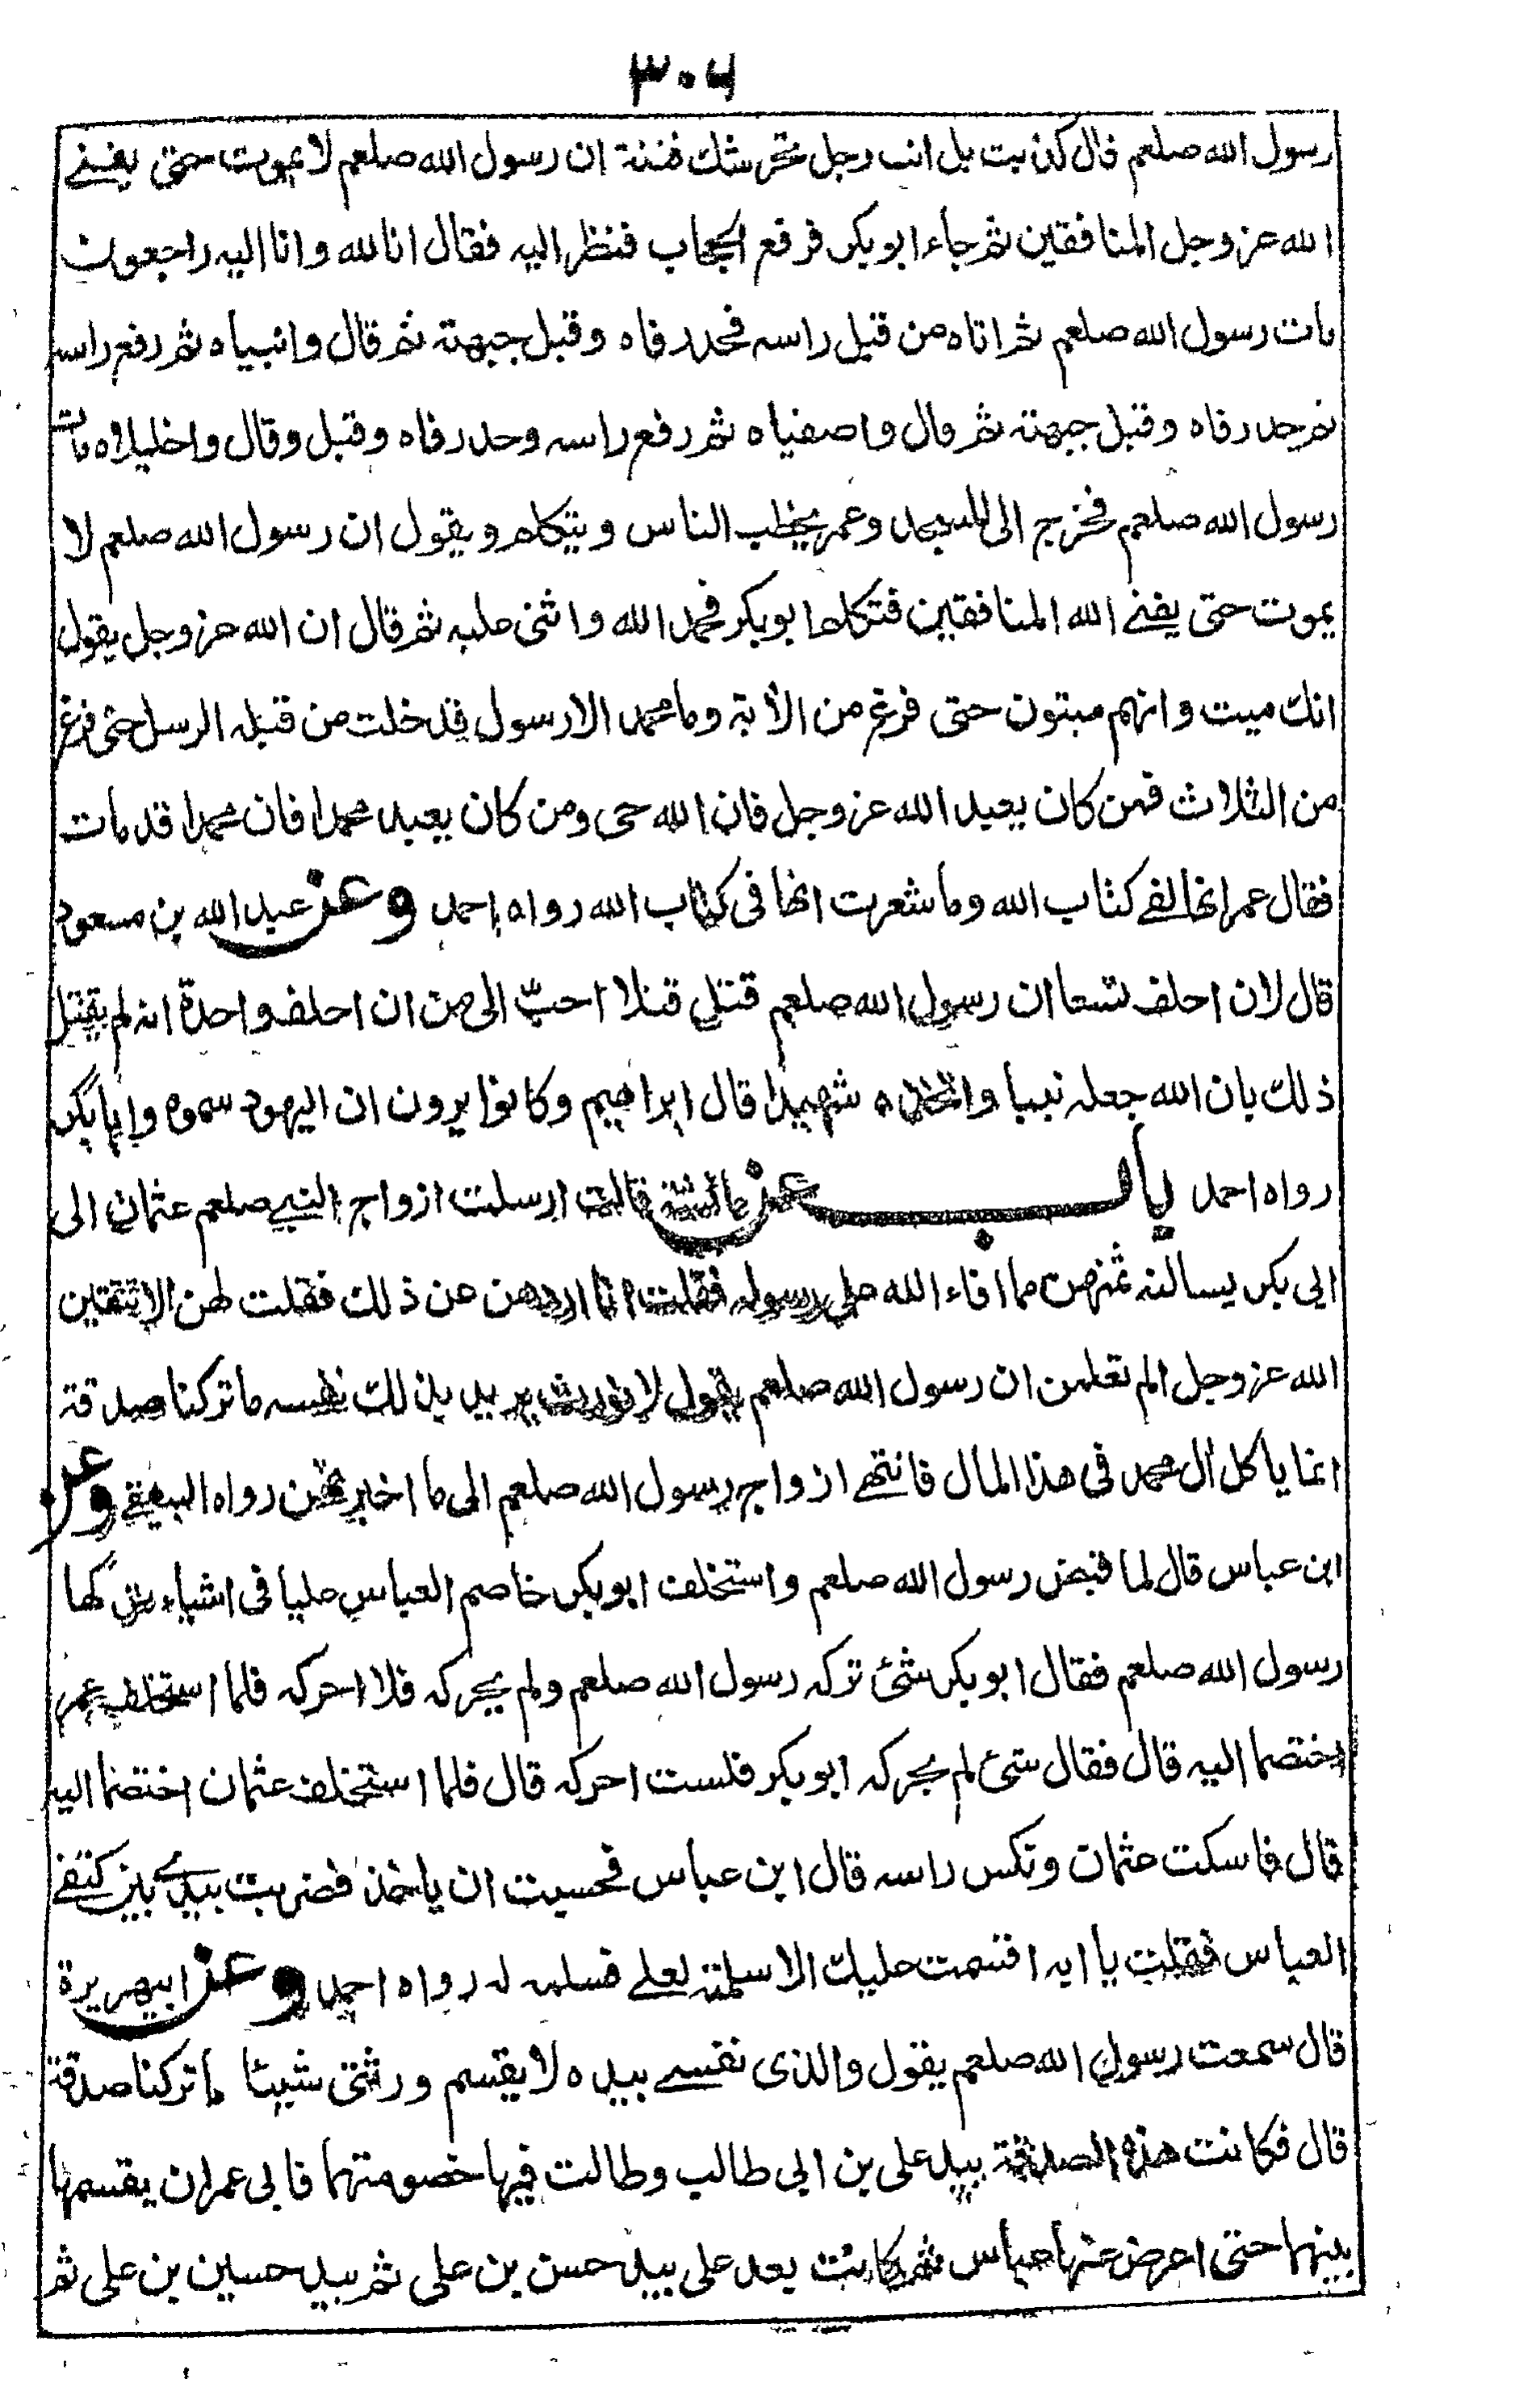 ٣٠٦
رسول الله صلعم قال كذبت بل انت رجل تحوشك فتنة ان رسول الله صلعم لا يموت حتى يفنے
الله عز وجل المنافقين ثم جاء ابو بكر فرفع الحجاب فنظر اليه فقال انا لله وانا اليه راجعون
مات رسول الله صلعم ثم اتاه من قبل راسه فحدر فاه وقبل جبهته ثم قال وانبياه ثم رفع راسه
ثم حدر فاه وقبل جبهته ثم قال واصفياه ثم رفع راسه وحدر فاه وقبل وقال واخليلاه مات
رسول الله صلعم فخرج الى المسجد وعمر يخطب الناس ويتكلم ويقول ان رسول الله صلعم لا
يموت حتى يفنے الله المنافقين فتكلم ابو بكر فحمد الله واثنى عليه ثم قال ان الله عز وجل يقول
انك ميت وانهم ميتون حتى فرغ من الآية وما محمد الا رسول قد خلت من قبله الرسل حتى فرغ
من الثلاث فمن كان يعبد الله عز وجل فان الله حى ومن كان يعبد محمدا فان محمدا قد مات
فقال عمر انها لفے كتاب الله وما شعرت انها فى كتاب الله رواه احمد وعن عبد الله بن مسعود
قال لان احلف تسعا ان رسول الله صلعم قتل قتلا احبّ الى من ان احلف واحدة انه لم يقتل
ذلك بان الله جعله نبيا واتخذه شهيدا قال ابراهيم وكانوا يرون ان اليهود سموه وابا بكر
رواه احمد باب عن عائشة قالت ارسلت ازواج النبے صلعم عثمان الى
ابى بكر يسالنه ثمنهن مما افاء الله على رسوله فقلت انا اردهن عن ذلك فقلت لهن الا تتقين
الله عز وجل الم تعلمن ان رسول الله صلعم يقول لا نورث يريد بذلك نفسه ما تركنا صدقة
انما ياكل آل محمد فى هذا المال فانتهے ازواج رسول الله صلعم الى ما اخبرتهن رواه البيهقے وعن
ابن عباس قال لما قبض رسول الله صلعم واستخلف ابو بكر خاصم العباس عليا فى اشياء تركها
رسول الله صلعم فقال ابو بكر شئ تركه رسول الله صلعم ولم يحركه فلا احركه فلما استخلف عمر
اختصما اليه قال فقال شئ لم يحركه ابو بكر فلست احركه قال فلما استخلف عثمان اختصما اليه
قال فاسكت عثمان ونكس راسه قال ابن عباس فحسبت ان ياخذ فضربت بيدے بين كتفے
العباس فقلت يا ابه اقسمت عليك الا سلمته لعلے فسلمه له رواه احمد وعن ابيهريرة
قال سمعت رسول الله صلعم يقول والذى نفسے بيده لا يقسم ورثتى شيئا ما تركنا صدقة
قال فكانت هذه الصدقة بيد على بن ابى طالب وطالت فيها خصومتهما فابى عمر ان يقسمها
بينهما حتى اعرض عنها عباس ثم كانت بعد على بيد حسن بن على ثم بيد حسين بن على ثم